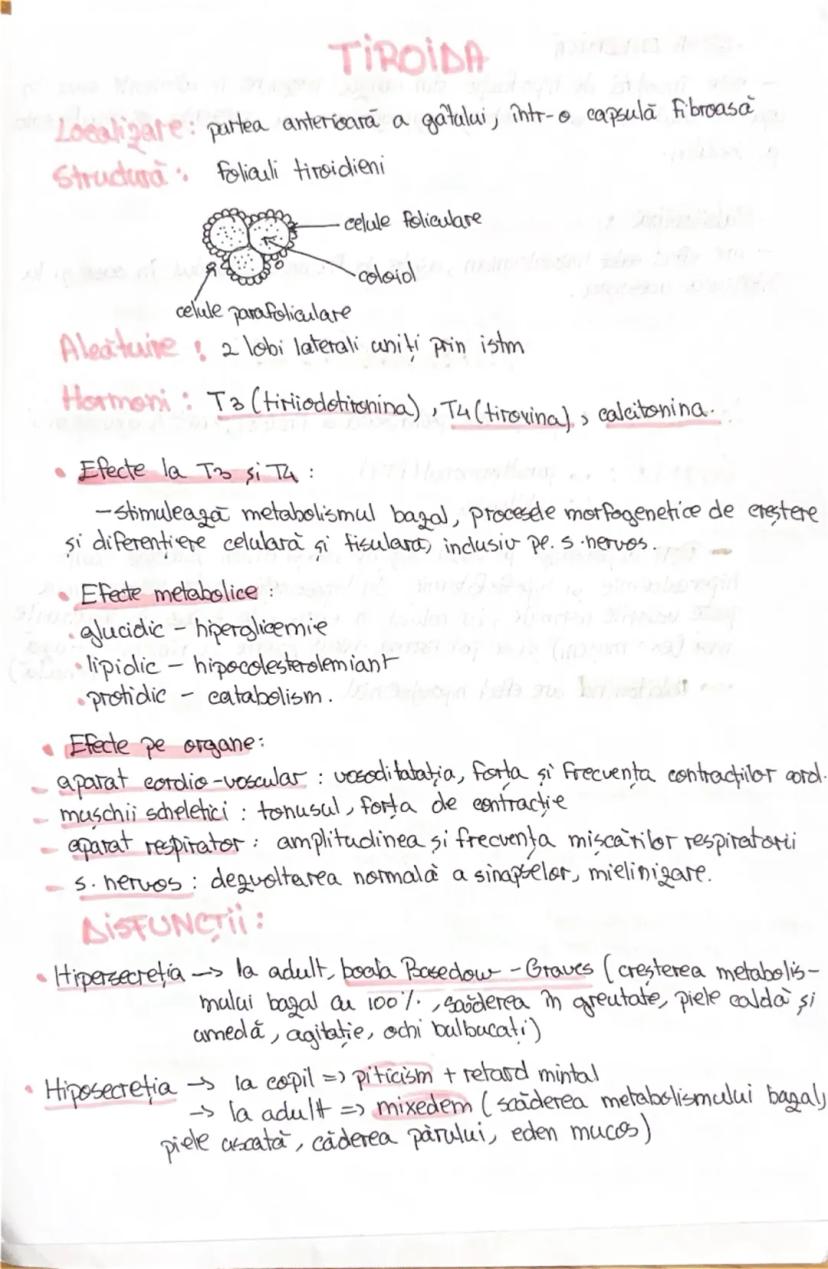 TIROIDA
Localizare: partea anterioară a gâtului, într-o capsulă fibroasă
Structură: foliculi tiroidieni
celule foliculare
coloid
celule parafoliculare
Alcătuire: 2 lobi laterali uniți prin istm
Hormoni: T3 (tiriiodotironina), T4 (tiroxina), calcitonina.
• Efecte la T3 și T4:
- stimulează metabolismul bazal, procesele morfogenetice de creștere
și diferențiere celulară și tisulară, inclusiv pe s. nervos.
• Efecte metabolice:
• glucidic - hiperglicemie
• lipidic - hipocolesterolemiant
• protidic - catabolism.
• Efecte pe organe:
- aparat cardio-vascular: vasodilatația, forța și frecvența contracțiilor cord.
- mușchii scheletici: tonusul, forța de contracție
- aparat respirator: amplitudinea și frecvența mișcărilor respiratorii
- s. nervos: dezvoltarea normală a sinapselor, mielinizare.
DISFUNCȚII:
• Hipersecreția -> la adult, boala Basedow-Graves (creșterea metabolis-
mului bazal cu 100%, scăderea în greutate, piele caldă și
umedă, agitație, ochi bulbucați)
• Hiposecreția -> la copil => piticism + retard mintal
-> la adult => mixedem (scăderea metabolismului bazal,
piele uscată, căderea părului, edem mucos)